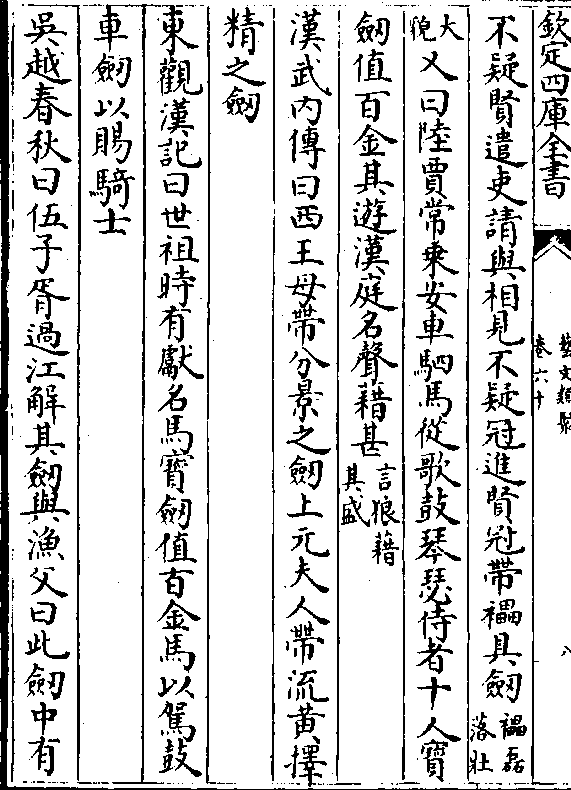 欽定四庫全書
藝文類聚
卷六十
八
不疑賢遣吏請與相見不疑冠進賢冠帶櫑具劔櫑磊落壯
大貌又曰陸賈常乘安車駟馬從歌鼓琴瑟侍者十人寳
劔值百金其遊漢庭名聲藉甚言狼藉其盛
漢武内傳曰西王母帶分景之劔上元夫人帶流黄擇
精之劔
東觀漢記曰世祖時有獻名馬寳劔值百金馬以駕鼓
車劔以賜騎士
吳越春秋曰伍子胥過江解其劔與漁父曰此劔中有